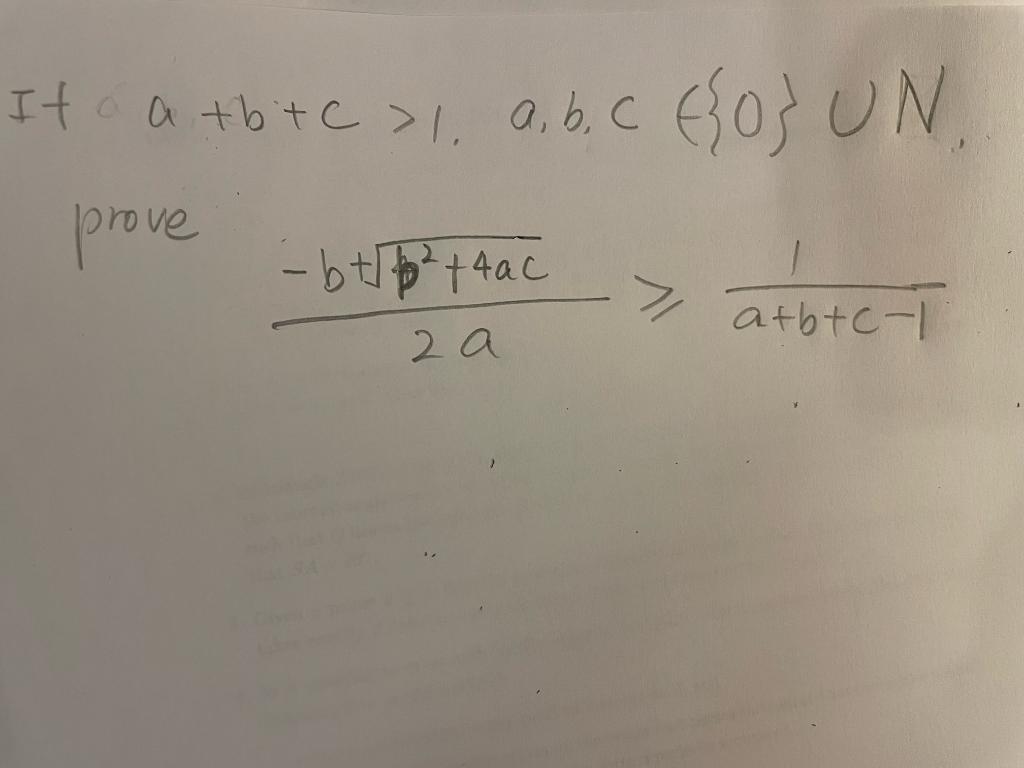 If a + b + c > 1. a, b, c ∈ {0} ∪ N.
prove
\frac{-b+\sqrt{b^2+4ac}}{2a} ⩾ \frac{1}{a+b+c-1}